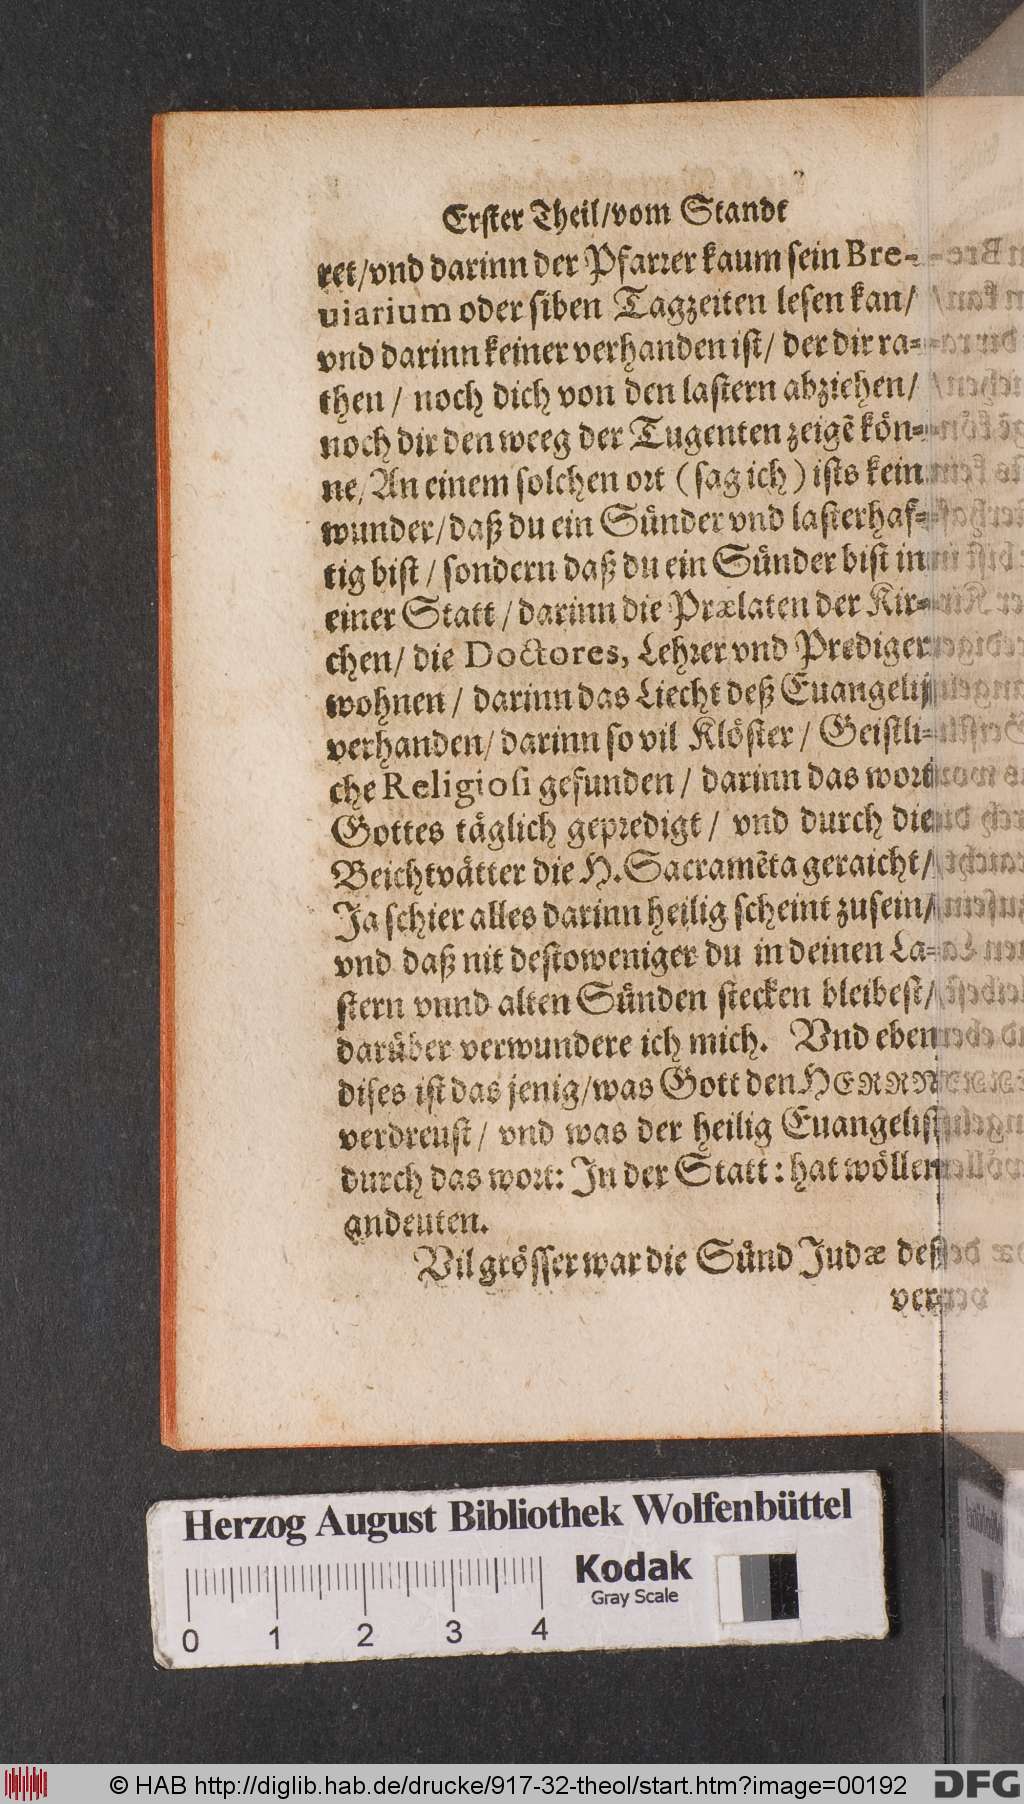 Erster Theil/vom Standt
ret/vnd darinn der Pfarrer kaum sein Bre-
uiarium oder siben Tagzeiten lesen kan/
vnd darinn keiner verhanden ist/ der dir ra-
then / noch dich von den lastern abziehen/
noch dir den weeg der Tugenten zeigẽ kön-
ne/ An einem solchen ort ( sag ich ) ists kein
wunder/daß du ein Sünder vnd lasterhaf-
tig bist / sondern daß du ein Sünder bist in
einer Statt / darinn die Prælaten der Kir-
chen/ die Doctores, Lehrer vnd Prediger
wohnen / darinn das Liecht deß Euangelij
verhanden/ darinn so vil Klöster / Geistli-
che Religiosi gefunden / darinn das wort
Gottes täglich gepredigt / vnd durch die
Beichtvätter die H. Sacramẽta geraicht/
Ja schier alles darinn heilig scheint zusein/
vnd daß nit destoweniger du in deinen La-
stern vnnd alten Sünden stecken bleibest/
darüber verwundere ich mich. Vnd eben
dises ist das jenig/was Gott den HERRN
verdreust/ vnd was der heilig Euangelist
durch das wort: In der Statt: hat wöllen
andeuten.
Vil grösser war die Sünd Judæ deß
ver-
Herzog August Bibliothek Wolfenbüttel
Kodak
Gray Scale
0 1 2 3 4
© HAB http://diglib.hab.de/drucke/917-32-theol/start.htm?image=00192
DFG